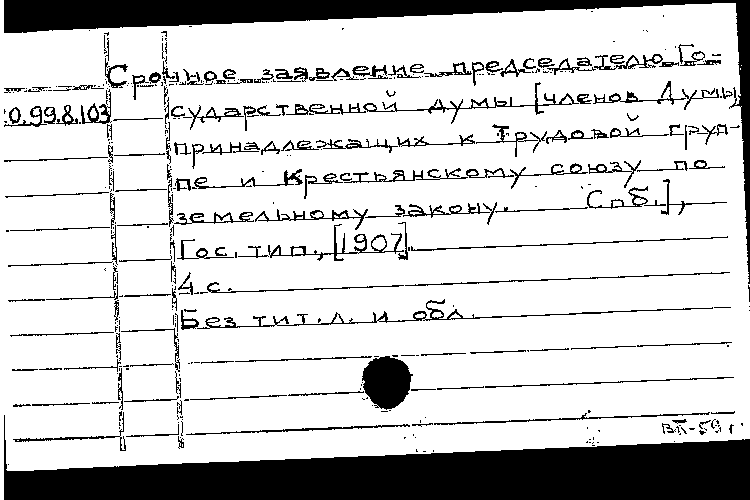 Срочное заявление председателю Го-
0.99.8.103 сударственной думы [членов Думы,
принадлежащих к Трудовой груп-
пе и Крестьянскому союзу по
земельному закону. Спб.],
Гос. тип., [1907].
4 с.
Без тит. л. и обл.
ВП-59 г.